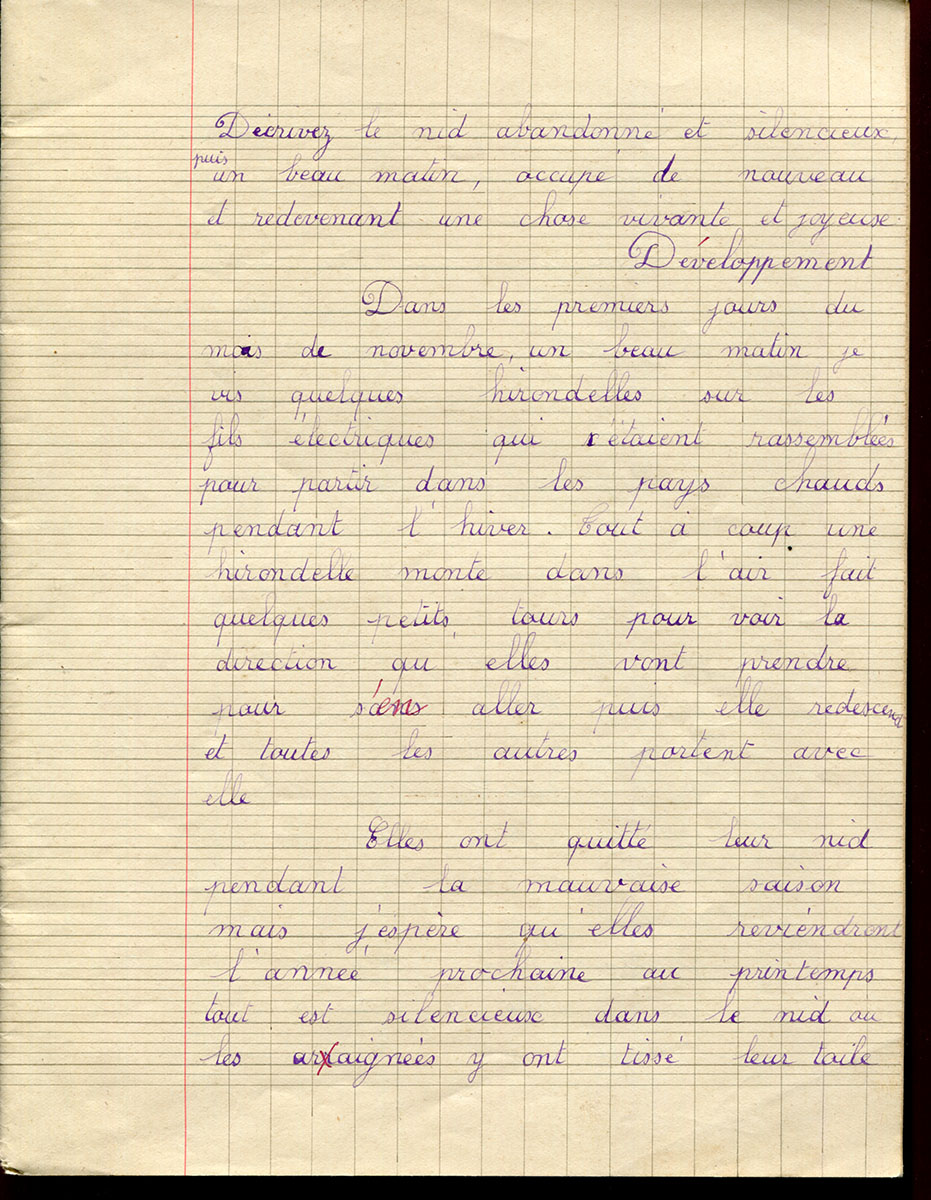 Décrivez le nid abandonné et silencieux,
puis
un beau matin, occupé de nouveau
et redevenant une chose vivante et joyeuse.
Développement
Dans les premiers jours du
mois de novembre, un beau matin je
vis quelques hirondelles sur les
fils électriques qui s'étaient rassemblées
pour partir dans les pays chauds
pendant l'hiver. Tout à coup une
hirondelle monte dans l'air fait
quelques petits tours pour voir la
direction qu'elles vont prendre
pour s'en aller puis elle redescend
et toutes les autres partent avec
elle
Elles ont quitté leur nid
pendant la mauvaise saison
mais j'espère qu'elles reviendront
l'année prochaine au printemps
tout est silencieux dans le nid ou
les arraignées y ont tissé leur toile